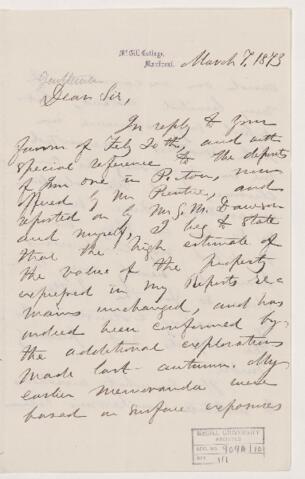 McGill College,
Montreal.
March 7, 1873
Gentlemen
Dear Sir,
In reply to your
favour of Feby 20th, and with
special reference to the deposits
of iron ore in Pictou, now
offered by Mr Prentice, and
reported on by Mr G. M. Dawson
and myself, I beg to state
that the high estimate of
the value of the property
expressed in my reports re-
mains unchanged, and has
indeed been confirmed by
the additional explorations
made last autumn. My
earlier memoranda were
based on surface exposures
McGILL UNIVERSITY
ARCHIVES
ACC. NO. 909A/10
REF. 1/1